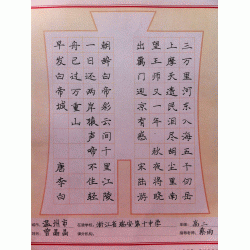 三万里河东入海五千仞岳
上摩天遗民泪尽胡尘里南
望王师又一年 秋夜将晓
出篱门迎凉有感 宋陆游
朝辞白帝彩云间千里江陵
一日还两岸猿声啼不住轻
舟已过万重山
早发白帝城 唐李白
温州市 浙江省瑞安第十中学 高二